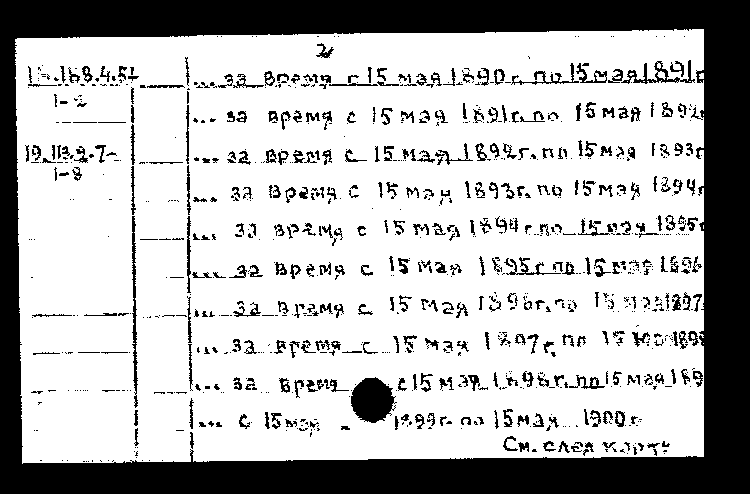 2
18.168.4.51 ... за время с 15 мая 1890 г. по 15 мая 1891 г
1-2
... за время с 15 мая 1891 г. по 15 мая 1892
19.113.2.7- ... за время с 15 мая 1892 г. по 15 мая 1893 г
1-8
... за время с 15 мая 1893 г. по 15 мая 1894 г
... за время с 15 мая 1894 г по 15 мая 1895 г
... за время с 15 мая 1895 г по 15 мая 1896
... за время с 15 мая 1896 г. по 15 мая 1897
... за время с 15 мая 1897 г. по 15 1898
... за время с 15 мая 1898 г. по 15 мая 189
... с 15 мая - 1899 г. по 15 мая 1900 г
См. след карту